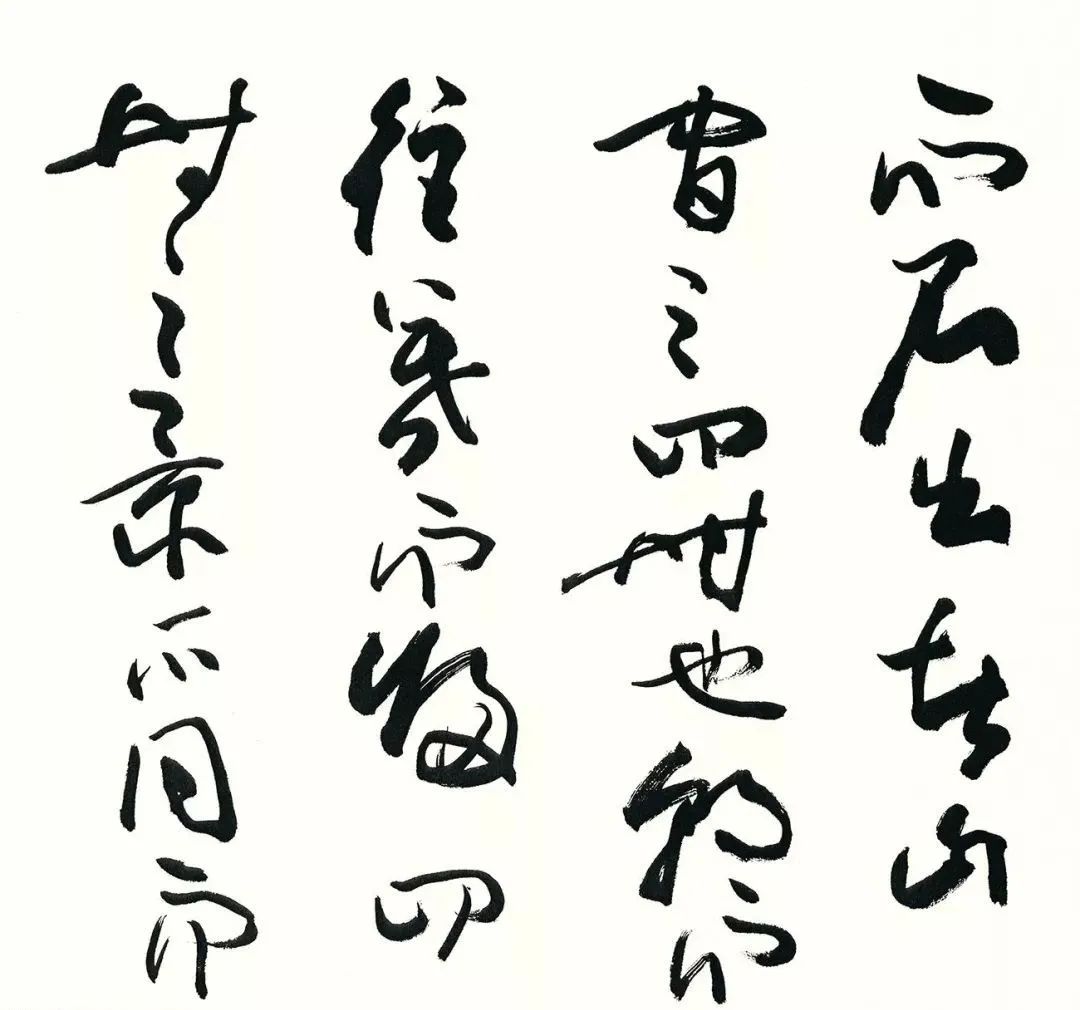 而石出者山
间之四时也朝而
往暮而归四
时之景不同而